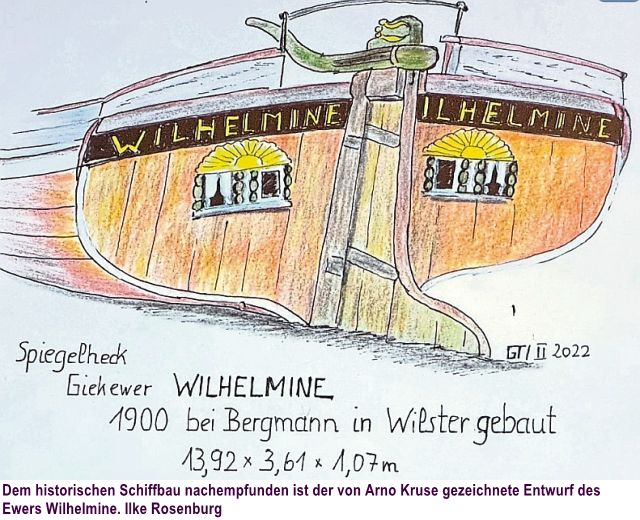 WILHELMINE ILHELMINE
GT/II 2022
Spiegelheck
Giekewer WILHELMINE
1900 bei Bergmann in Wilster gebaut
13,92 × 3,61 × 1,07m
Dem historischen Schiffbau nachempfunden ist der von Arno Kruse gezeichnete Entwurf des
Ewers Wilhelmine. Ilke Rosenburg